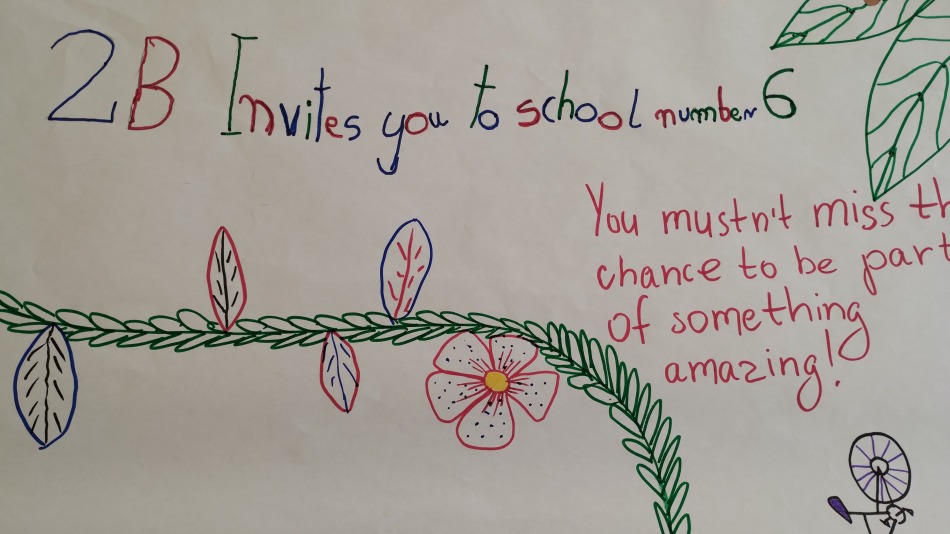 2B Invites you to school number 6
You mustn't miss th
chance to be part
of something
amazing!